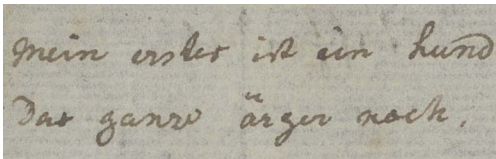 Mein erster ist ein hund
Das ganze ärger noch.